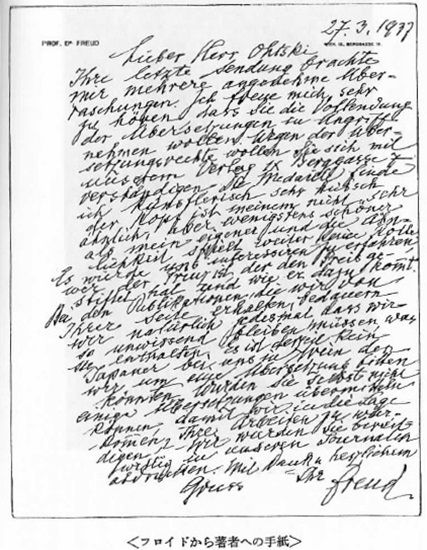 27. 3. 1937
PROF. Dr. FREUD
WIEN, IX., BERGGASSE 19.
Lieber Herr Ohtski
Ihre letzte Sendung brachte
mir mehrere angenehme Über-
raschungen. Ich freue mich sehr
zu hören dass Sie die Vollendung
der Übersetzungen in Angriff
nehmen wollen. Wegen der Über-
setzungsrechte wollen Sie sich mit
unserem Verlag Berggasse 7
verständigen. Die Medaille finde
ich künstlerisch sehr hübsch
der Kopf ist meinem nicht sehr
ähnlich, aber wenigstens schöner
als mein eigener und die Ähn-
lichkeit spielt weiter keine Rolle
Es würde uns interessieren zu erfahren
wer der ist, der den Preis ge-
stiftet hat und wie er dazu kommt.
Bei den Publikationen, die wir von
Ihrer Seite erhalten, bedauern
wir natürlich jedesmal dass wir
so unwissend bleiben müssen was
sie enthalten. Es ist derzeit kein
Japaner bei uns in Wien den
wir um eine Übersetzung bitten
könnten. Würden Sie selbst nicht
einige Übersetzungen übermitteln
können, damit wir in die Lage
kommen, Ihre Arbeiten zu wür-
digen. Wir würden Sie bereit-
willig in unseren Journalen
abdrucken. Mit Dank u herzlichem
Gruss Ihr Freud.
<フロイドから著者への手紙>